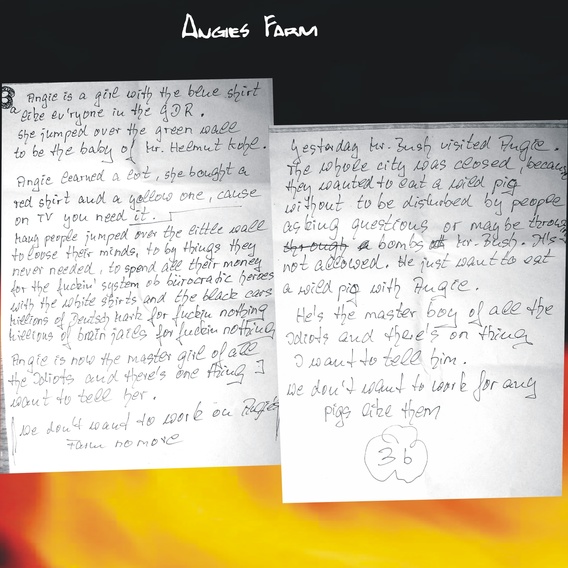 Angies Farm
Angie is a girl with the blue shirt
like ev'ryone in the GDR.
she jumped over the green wall
to be the baby of Mr. Helmut Kohl.
Angie learned a lot, she bought a
red shirt and a yellow one, cause
on TV you need it.
Many people jumped over the little wall
to loose their minds, to by things they
never needed, to spend all their money
for the fuckin' system of bürocratic heroes
with the white shirts and the black cars
Millions of Deutsch Mark for fuckin nothing
Millions of brain jails for fuckin nothing
Angie is now the master girl of all
the Idiots and there's one thing I
want to tell her.
we don't want to work on Angie's
Farm no more
Yesterday Mr. Bush visited Angie.
The whole city was closed, because
they wanted to eat a wild pig
without to be disturbed by people
asking questions or maybe throw
through a bombs Mr. Bush.
not allowed. He just want to eat
a wild pig with Angie.
He's the master boy of all the
Idiots and there's on thing
I want to tell him.
we don't want to work for any
pigs like them
36